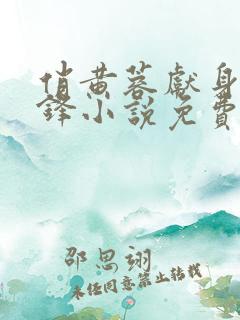 俏黄蓉献身
锋小说免费
邵思翊
未经同意禁止转载